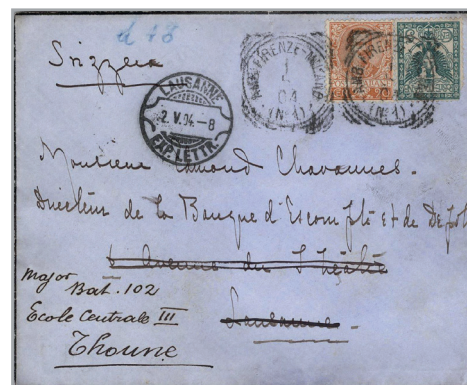 d 18
Svizzera
AMB. FIRENZE-MILANO
1
04
(N.1)
AMB. FIRENZE
(N.1)
LAUSANNE
2.V.04.-8
EXP.LETTR.
Monsieur Edmond Chavannes.
Directeur de la Banque d'Escompte et de Dépôts
6 Avenue du Théâtre
Lausanne.
Major
Bat. 102
Ecole Centrale III
Thoune